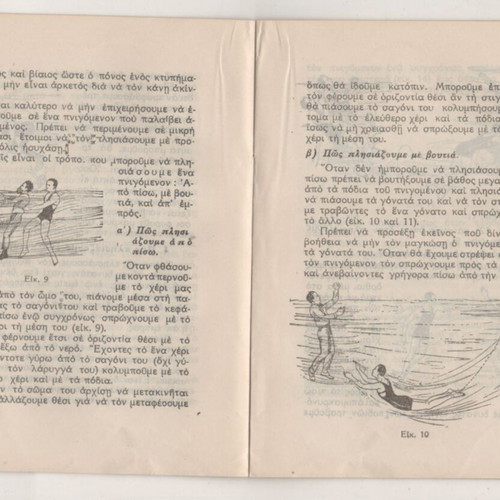 ς καὶ βίαιος ὥστε ὁ πόνος ἑνὸς κτυπήμα-
μὴν εἶναι ἀρκετὸς διὰ νὰ τὸν κάνῃ ἀκίν-
αι καλύτερο νὰ μὴν ἐπιχειρήσουμε νὰ ἐ-
σουμε ἕνα πνιγόμενο ποὺ παλαίβει ἀ-
μένος. Πρέπει νὰ περιμένουμε σὲ μικρὴ
ἕτοιμοι νὰ τὸν πλησιάσουμε μὲ προ-
όλις ἡσυχάσῃ.
ῖς εἶναι οἱ τρόποι ποὺ μποροῦμε νὰ πλη-
σιάσουμε ἕνα
πνιγόμενον: Ἀ-
πὸ πίσω, μὲ βου-
τιά, καὶ ἀπ' ἐμ-
πρός.
α') Πῶς πλησι-
άζουμε ἀπὸ
πίσω.
Ὅταν φθάσου-
με κοντὰ περνοῦ-
με τὸ χέρι μας
Εἰκ. 9
ἀπὸ τὸν ὦμο του, πιάνομε μέσα στὴ πα-
τὸ σαγόνι του καὶ τραβοῦμε τὸ κεφά-
πίσω ἐνῷ συγχρόνως σπρώχνουμε μὲ τὸ
ρι τὴ μέση του (εἰκ. 9).
φέρνουμε ἔτσι σὲ ὁριζοντία θέσι μὲ τὸ
ἔξω ἀπὸ τὸ νερό. Ἔχοντες τὸ ἕνα χέρι
ντοτε γύρω ἀπὸ τὸ σαγόνι του (ὄχι γύ-
τὸν λάρυγγά του) κολυμποῦμε μὲ τὸ
χέρι καὶ μὲ τὰ πόδια.
τὸ σῶμα του ἀρχίσῃ νὰ μετακινῆται
ἀλλάζουμε θέσι γιὰ νὰ τὸν μεταφέσουμε
ὅπως θὰ ἰδοῦμε κατόπιν. Μποροῦμε ἐπ
τὸν φέρουμε σὲ ὁριζοντία θέσι ἂν τὴ στιγ
θὰ πιάσουμε τὸ σαγόνι του κολυμπήσουμ
τομα μὲ τὸ ἐλεύθερο χέρι καὶ τὰ πόδια
ἴσως νὰ μὴ χρειασθῇ νὰ σπρώξουμε μὲ τ
χέρι τὴ μέση του.
β) Πῶς πλησιάζουμε μὲ βουτιά.
Ὅταν δὲν ἠμποροῦμε νὰ πλησιάσου
πίσω πρέπει νὰ βουτήξουμε σὲ βάθος μεγα
ἀπὸ τὰ πόδια τοῦ πνιγομένου καὶ πλησι
νὰ πιάσουμε τὰ γόνατά του καὶ νὰ τὸν στ
με τραβῶντες τὸ ἕνα γόνατο καὶ σπρώχν
τὸ ἄλλο (εἰκ. 10 καὶ 11).
Πρέπει νὰ προσέξῃ ἐκεῖνος ποὺ δίν
βοήθεια νὰ μὴν τὸν μαγκώσῃ ὁ πνιγόμεν
τὰ γόνατά του. Ὅταν θὰ ἔχουμε στρέψει ἀ
τὸν πνιγόμενον τὸν σπρώχνουμε πρὸς τὰ
καὶ ἀνεβαίνοντες γρήγορα πίσω ἀπὸ τὴν
Εἰκ. 10